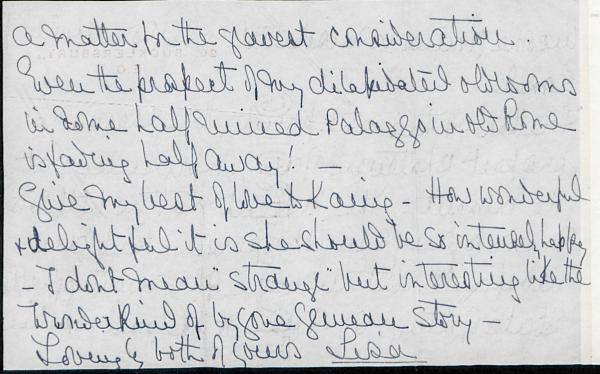 a matter for the gravest consideration.
Even the prospect of my dilapidated old rooms
in some half ruined Palazzo in old Rome
is fading half away! —
Give my best of love to — How wonderful
& delightful it is she should be so intensely happy
– I don't mean "strange" but interesting like the
Wonderkind of bygone German story –
Lovingly both of yours Lisa